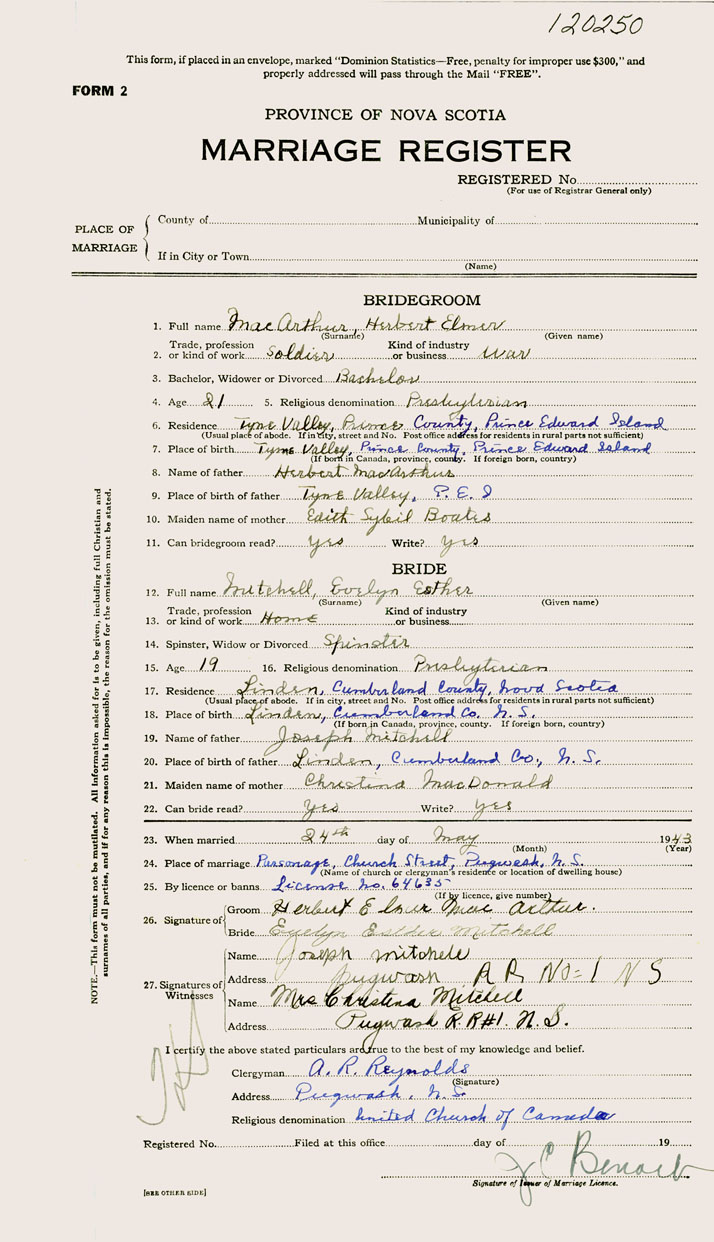 120250
This form, if placed in an envelope, marked "Dominion Statistics—Free, penalty for improper use $300," and
properly addressed will pass through the Mail "FREE".
FORM 2
PROVINCE OF NOVA SCOTIA
MARRIAGE REGISTER
REGISTERED No.
(For use of Registrar General only)
PLACE OF MARRIAGE
County of Municipality of
If in City or Town
(Name)
BRIDEGROOM
1. Full name MacArthur, Herbert Elmer
(Surname) (Given name)
2. Trade, profession or kind of work Soldier Kind of industry or business War
3. Bachelor, Widower or Divorced Bachelor
4. Age 21 5. Religious denomination Presbyterian
6. Residence Tyne Valley, Prince County, Prince Edward Island
(Usual place of abode. If in city, street and No. Post office address for residents in rural parts not sufficient)
7. Place of birth Tyne Valley, Prince County, Prince Edward Island
(If born in Canada, province, county. If foreign born, country)
8. Name of father Herbert MacArthur
9. Place of birth of father Tyne Valley, P. E. I
10. Maiden name of mother Edith Sybil Boates
11. Can bridegroom read? Yes Write? Yes
BRIDE
12. Full name Mitchell, Evelyn Esther
(Surname) (Given name)
13. Trade, profession or kind of work Home Kind of industry or business
14. Spinster, Widow or Divorced Spinster
15. Age 19 16. Religious denomination Presbyterian
17. Residence Linden, Cumberland County, Nova Scotia
(Usual place of abode. If in city, street and No. Post office address for residents in rural parts not sufficient)
18. Place of birth Linden, Cumberland Co. N. S.
(If born in Canada, province, county. If foreign born, country)
19. Name of father Joseph Mitchell
20. Place of birth of father Linden, Cumberland Co., N. S.
21. Maiden name of mother Christina MacDonald
22. Can bride read? Yes Write? Yes
23. When married 24th day of May 1943
(Month) (Year)
24. Place of marriage Parsonage, Church Street, Pugwash, N. S.
(Name of church or clergyman's residence or location of dwelling house)
25. By licence or banns License No. 64635
(If by licence, give number)
26. Signature of Groom Herbert Elmer Mac Arthur.
Bride Evelyn Esther Mitchell
27. Signatures of Witnesses
Name Joseph Mitchell
Address Pugwash R R No=1 N S
Name Mrs Christina Mitchell
Address Pugwash R.R#1. N.S.
I certify the above stated particulars are true to the best of my knowledge and belief.
Clergyman A. R. Reynolds
(Signature)
Address Pugwash, N. S.
Religious denomination United Church of Canada
Registered No. Filed at this office day of 19
J C Benoit
Signature of Issuer of Marriage Licence.
[SEE OTHER SIDE]
NOTE.—This form must not be mutilated. All information asked for is to be given, including full Christian and
surnames of all parties, and if for any reason this is impossible, the reason for the omission must be stated.